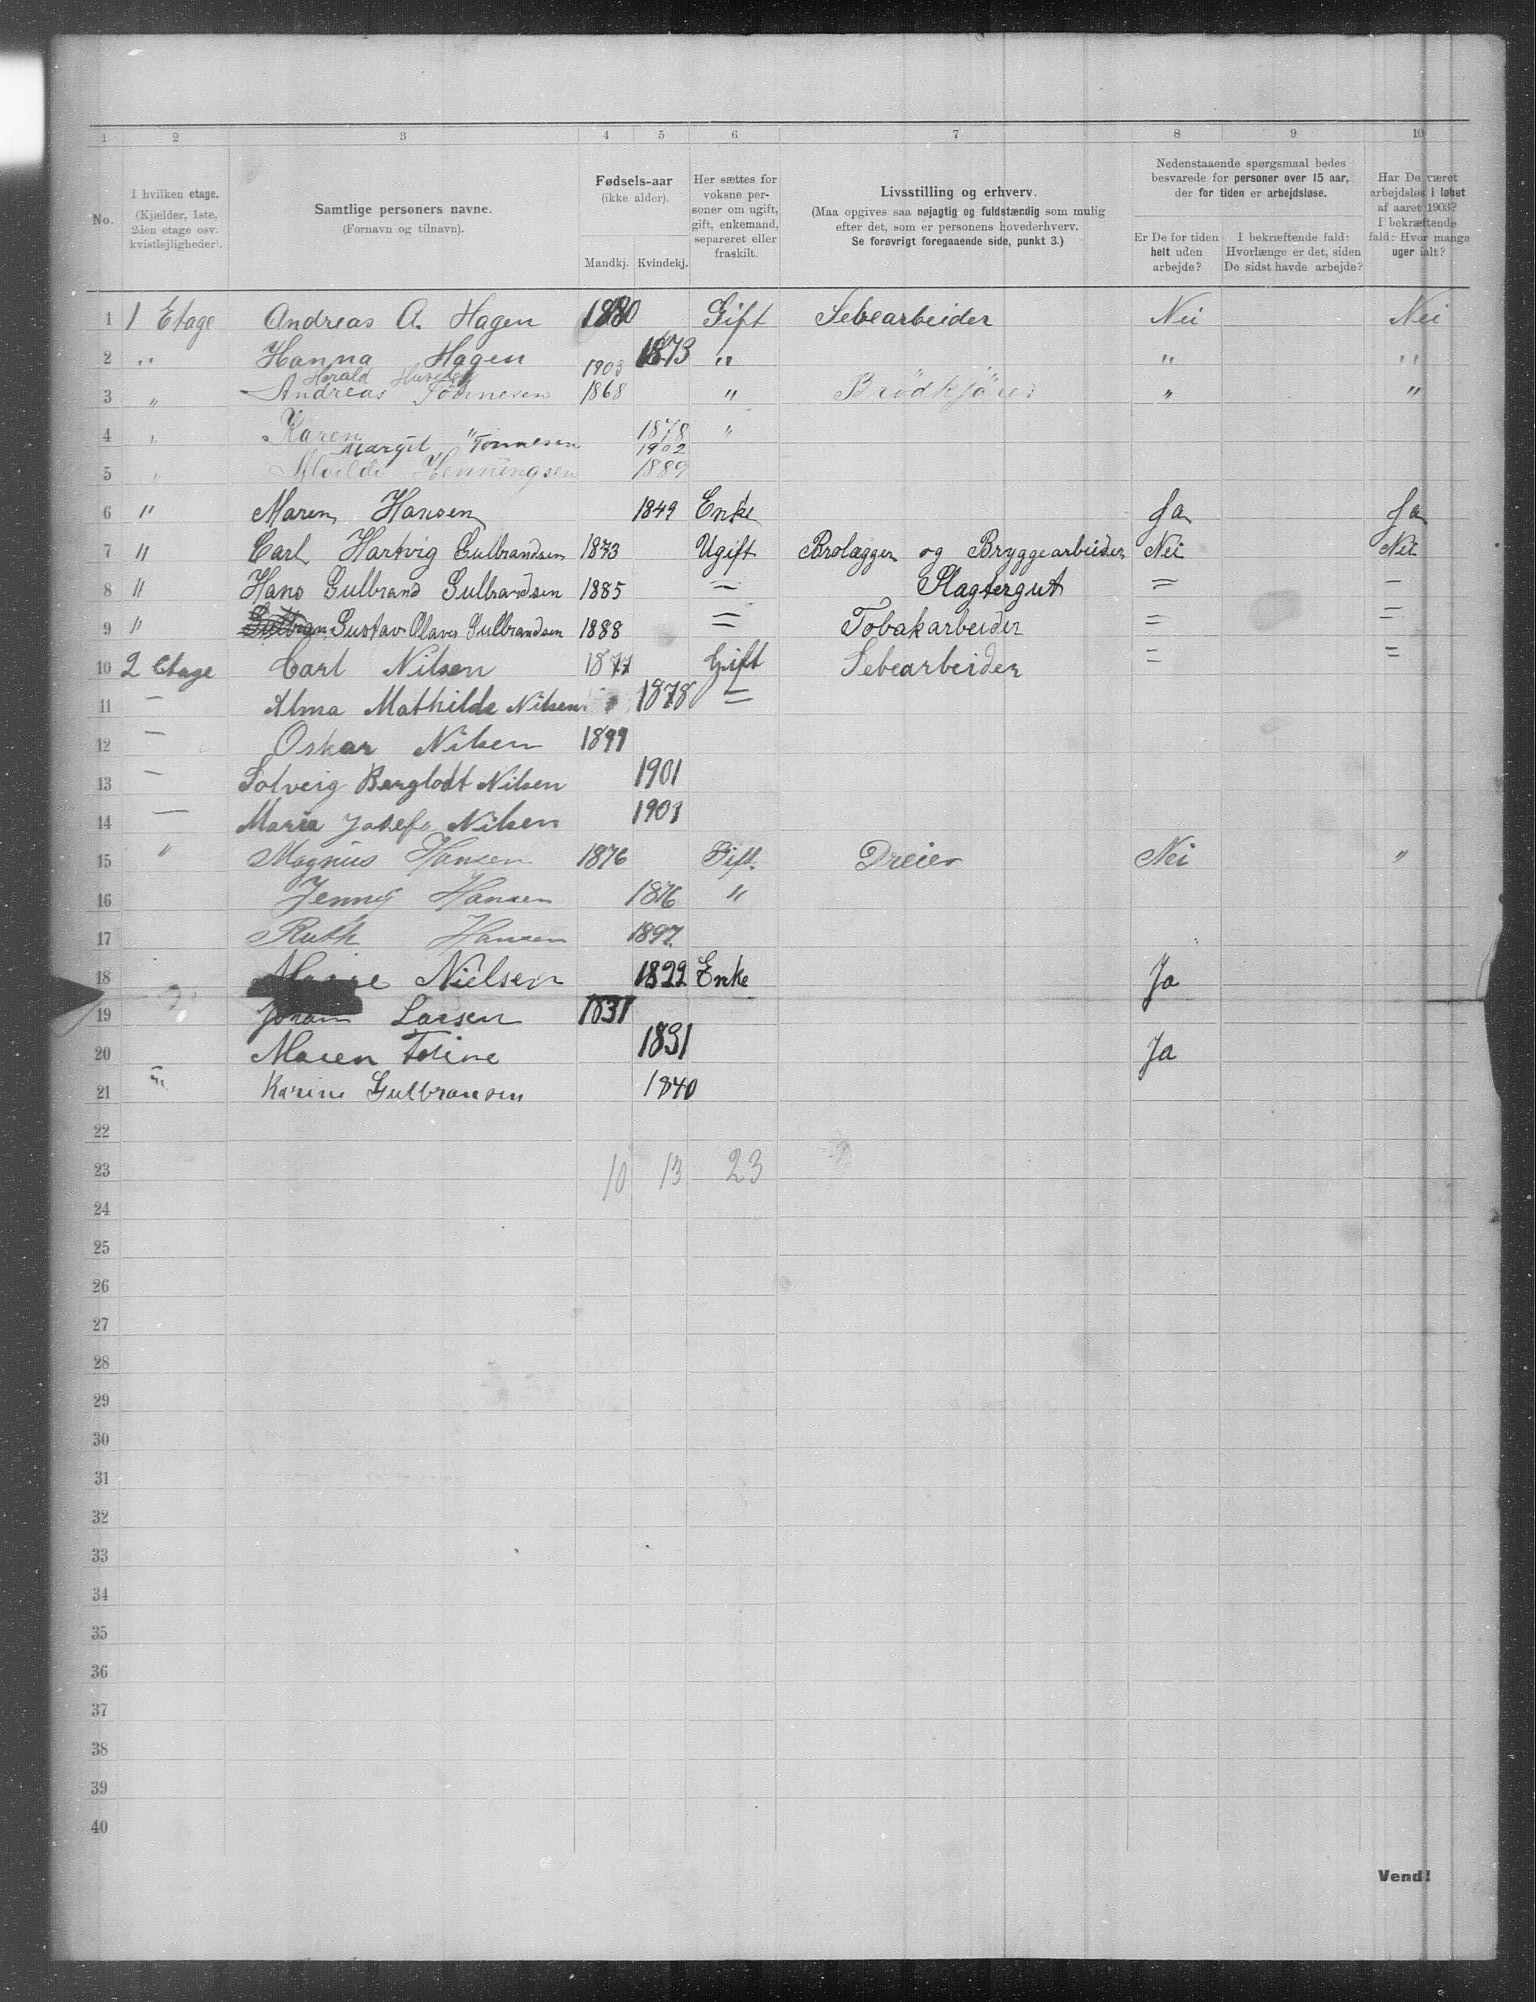 1 2 3 4 5 6 7 8 9 10
No.
I hvilken etage.
(Kjælder, 1ste, 2den etage osv. kvistlejligheder).
Samtlige personers navne.
(Fornavn og tilnavn).
Fødsels-aar
(ikke alder).
Mandkj. Kvindekj.
Her sættes for voksne personer om ugift, gift, enkemand, separeret eller fraskilt.
Livsstilling og erhverv.
(Maa opgives saa nøjagtig og fuldstændig som mulig efter det, som er personens hovederhverv.
Se forøvrigt foregaaende side, punkt 3.)
Nedenstaaende spørgsmaal bedes besvarede for personer over 15 aar, der for tiden er arbejdsløse.
Er De for tiden helt uden arbejde?
I bekræftende fald: Hvorlænge er det, siden De sidst havde arbejde?
Har De været arbejdsløs i løbet af aaret 1903? I bekræftende fald: Hvor mange uger ialt?
1 1 Etage Andreas A. Hagen 1880 Gift Sebearbeider Nei Nei
2 " Hanna Hagen 1873 " " "
Harald 1903
3 " Andreas Tönnesen 1868 " Brödkjörer " "
4 " Karen " 1878 "
Margit Tönnesen 1902
5 " Henningsen 1889
6 " Maren Hansen 1849 Enke Ja Ja
7 " Carl Hartvig Gulbrandsen 1873 Ugift Brolægger og Bryggearbeider Nei Nei
8 " Hans Gulbrand Gulbrandsen 1885 = Slagtergut = –
9 " Gustav Olaves Gulbrandsen 1888 = Tobakarbeider = =
10 2 Etage Carl Nilsen 1877 Gift Sebearbeider = =
11 – Alma Mathilde Nilsen 1878 =
12 – Oskar Nilsen 1899
13 – Solveig Bergliodt Nilsen 1901
14 – Maria Josefo Nilsen 1901
15 " Magnus Hansen 1876 Gift. Dreier Nei "
16 Jenny Hansen 1876 "
17 Ruth Hansen 1897
18 Nielsen 1822 Enke Ja
19 Johan Larsen 1831
20 Maren Toline 1831 Ja
21 " Karine Gulbransen 1840
22
23 10 13 23
24
25
26
27
28
29
30
31
32
33
34
35
36
37
38
39
40
Vend!